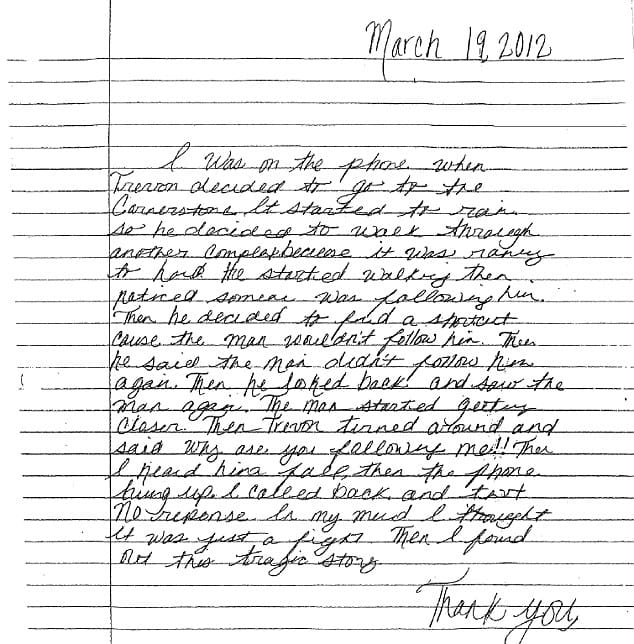 March 19, 2012
I was on the phone when
Trevon decided to go to the
Cornerstore It started to rain
so he decided to walk through
another complex because it was raining
to hard He started walking then
noticed someone was following him.
Then he decided to find a shortcut
cause the man wouldn't follow him. Then
he said the man didn't follow him
again. Then he looked back and saw the
man again. The man started getting
closer. Then Trevon turned around and
said Why are you following me!! Then
I heard him fall, then the phone
hung up. I called back and text
No reponse In my mind I thought
it was just a fight Then I found
out this tragic story
Thank you,